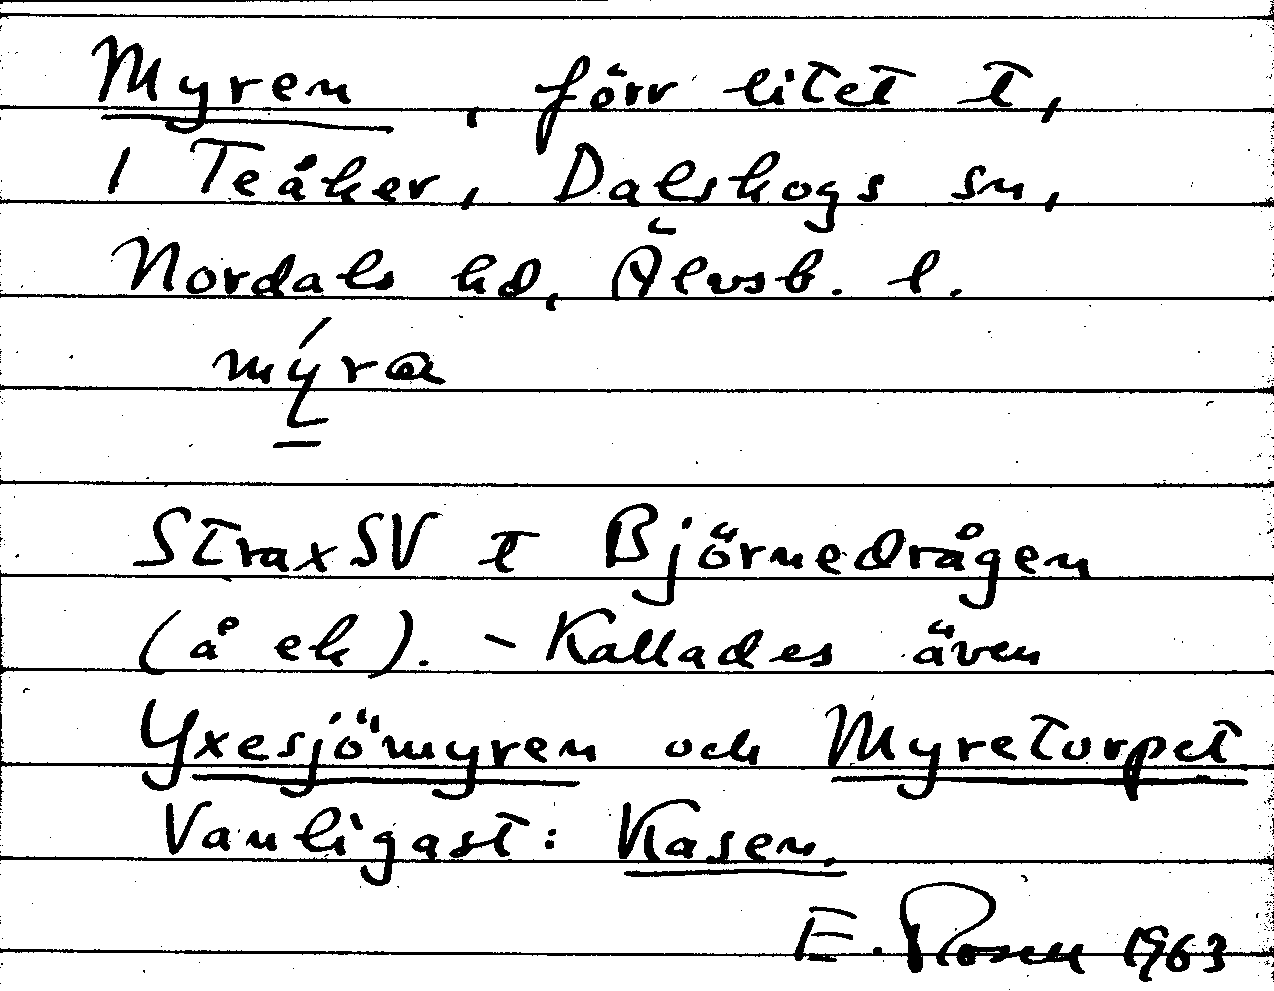 Myren, förr litet t,
I Teåker, Dalskogs sn,
Nordals hd, Älvsb. l.
mýra
Strax SV t Björnedrågen
(å ek). - Kallades även
Yxesjömyren och Myretorpet
Vanligast: Kasen.
E. Rosen 1963